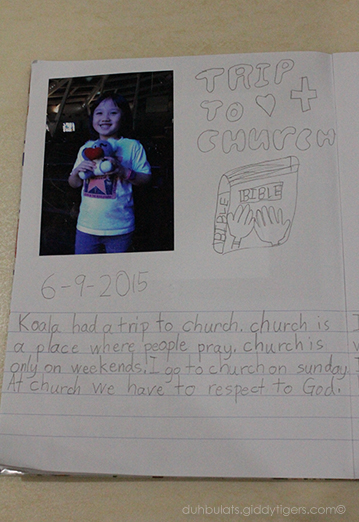 TRIP
TO
CHURCH
BIBLE
BIBLE
6-9-2015
Koala had a trip to church. church is
a place where people pray. church is
only on weekends. I go to church on sunday.
At church we have to respect to God.
duhbulats.giddytigers.com©